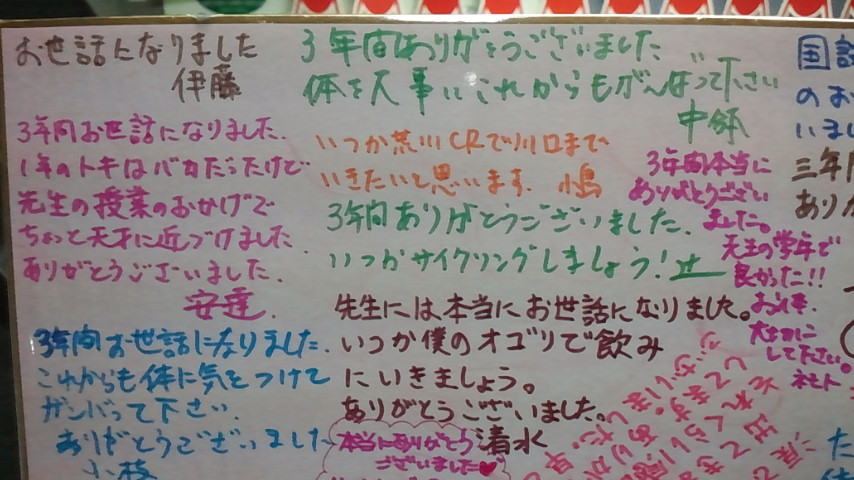 お世話になりました
伊藤
3年間ありがとうございました
体を大事にこれからもがんばって下さい
3年間お世話になりました.
1年のトキはバカだったけど
先生の授業のおかげで
ちょっと天才に近づけました
ありがとうございました.
安達.
いつか荒川CRで川口まで
いきたいと思います. 小島
3年間ありがとうございました.
いつかサイクリングしましょう!辻
3年間本当に
ありがとうござい
ました。
先生の学年で
良かった!!
お仕事.
大切に
して下さい。
先生には本当にお世話になりました。
いつか僕のオゴリで飲み
にいきましょう。
ありがとうございました。
清水
3年間お世話になりました.
これからも体に気をつけて
ガンバって下さい.
ありがとうございました
小枝
本当にありがとう
ございました♥
国語
のお
いまし
三年間
ありが